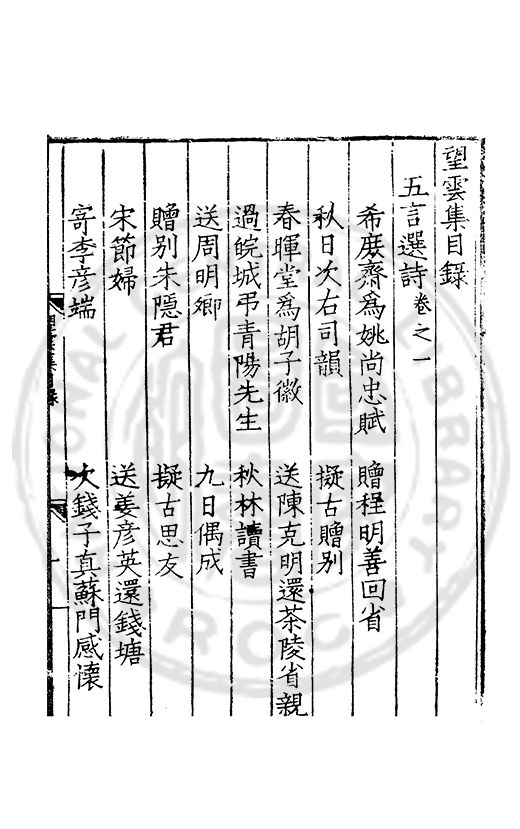 望雲集目錄
五言選詩卷之一
希庶齋爲姚尚忠賦　贈程明善回省
秋日次右司韻　擬古贈別
春暉堂爲胡子徽　送陳克明還茶陵省親
過皖城弔青陽先生　秋林讀書
送周明卿　九日偶成
贈別朱隱君　擬古思友
宋節婦　送姜彥英還錢塘
寄李彥端　次錢子真蘇門感懷